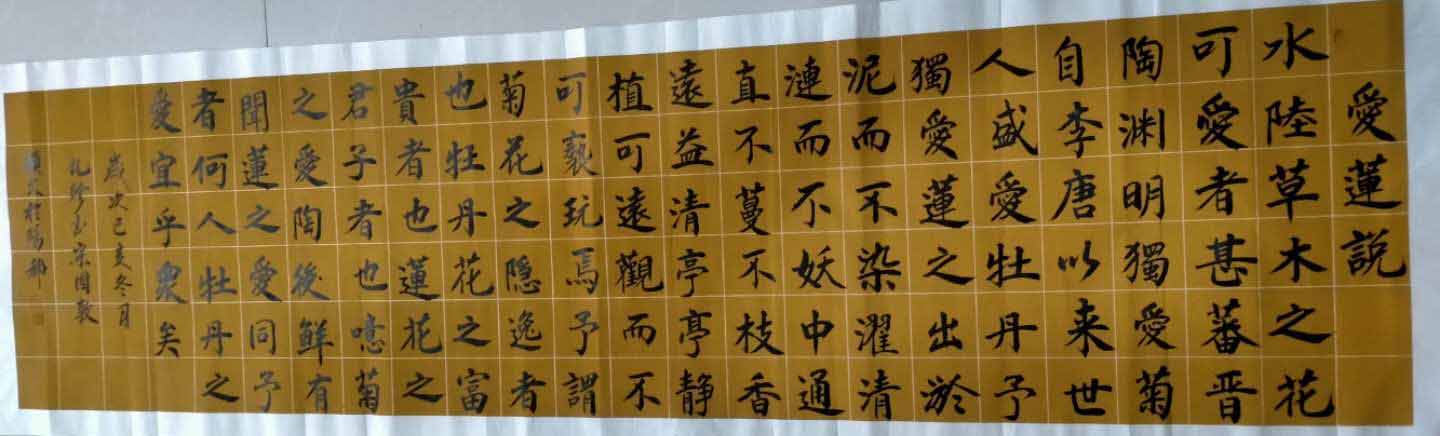 愛蓮説
水陸草木之花
可愛者甚蕃晋
陶渊明獨愛菊
自李唐以来世
人盛愛牡丹予
獨愛蓮之出淤
泥而不染濯清
漣而不妖中通
直不蔓不枝香
遠益清亭亭静
植可遠觀而不
可褻玩焉予謂
菊花之隐逸者
也牡丹花之富
貴者也蓮花之
君子者也噫菊
之愛陶後鮮有
聞蓮之愛同予
者何人牡丹之
愛宜乎衆矣
歲次己亥冬月
宋周敦